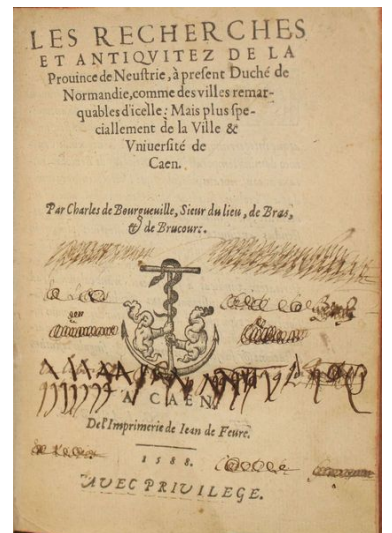 LES RECHERCHES
ET ANTIQVITEZ DE LA
Prouince de Neuſtrie, à preſent Duché de
Normandie, comme des villes remar-
quables d'icelle: Mais plus ſpe-
ciallement de la Ville &
Vniuerſité de
Caen.
Par Charles de Bourgueuille, Sieur du lieu, de Bras,
& de Brucourt.
A CAEN
De l'Imprimerie de Iean de Feure.
1588.
AVEC PRIVILEGE.